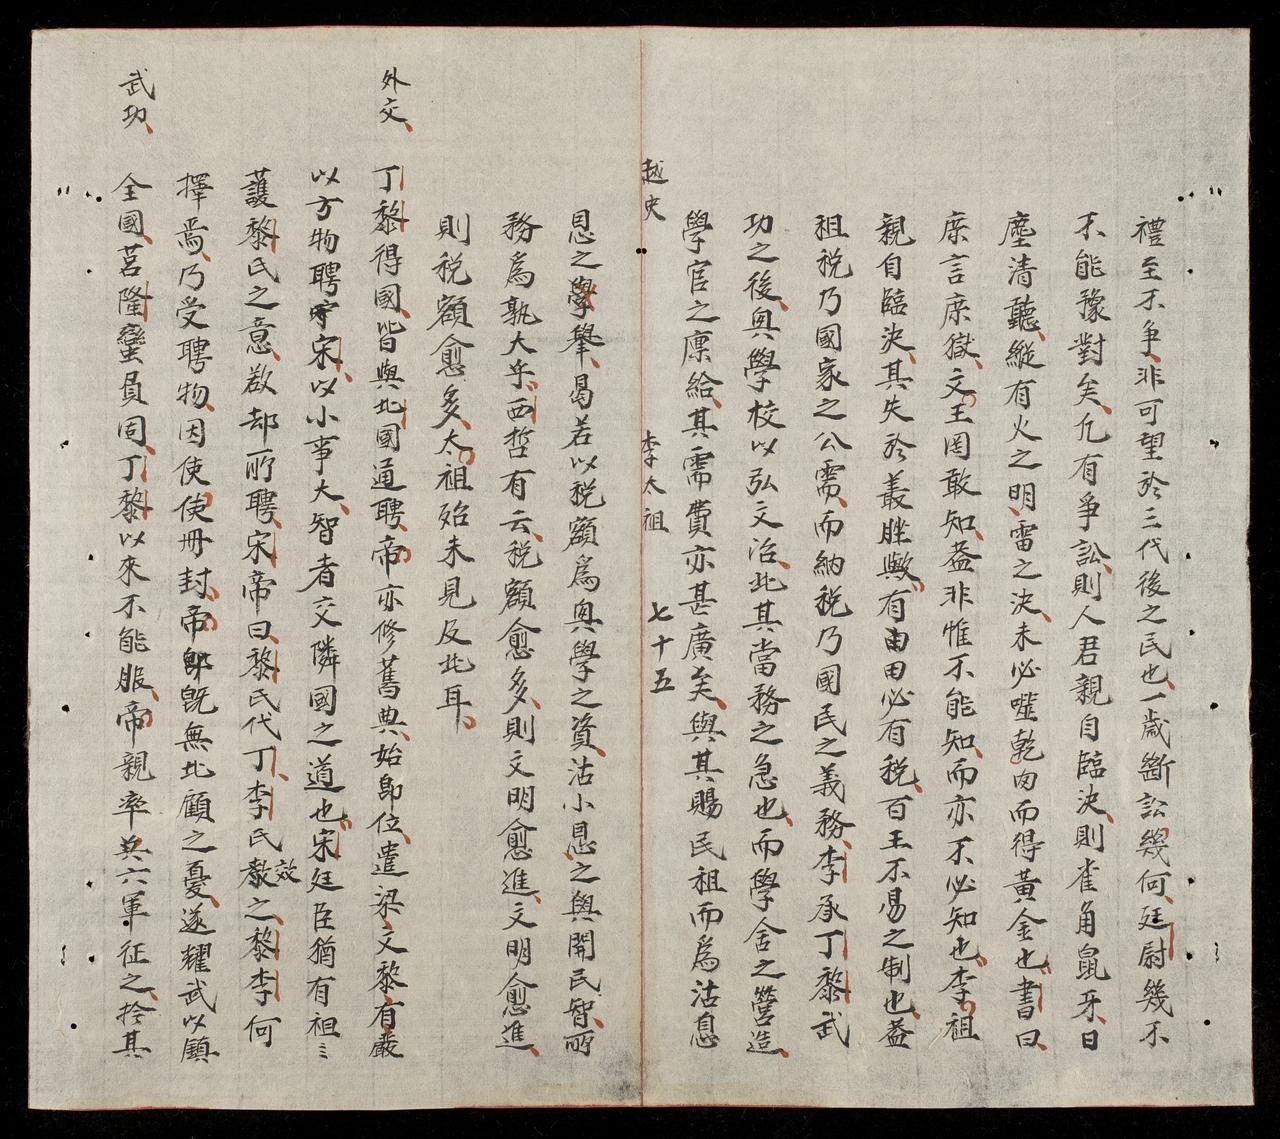 禮至不爭非可望於三代後之民也一歲斷訟幾何廷尉幾不
不能豫對矣凢有爭訟則人君親自臨決則雀角鼠牙日
塵清聽縱有火之明雷之決未必噬乾肉而得黃金也書曰
庶言庶獄文王罔敢知盖非惟不能知而亦不必知也李祖
親自臨決其失於叢脞歟有田必有稅百王不易之制也盖
租稅乃國家之公需而納稅乃國民之義務李承丁黎武
功之後興學校以弘文治此其當務之急也而學舍之營造
學官之廩給其需費亦甚廣矣與其賜民租而爲沽息
越史 李太祖 七十五
恩之舉曷若以稅額爲興學之資沽小恩之與開民智所
務爲孰大乎西哲有云稅額愈多則文明愈進文明愈進
則稅額愈多太祖殆未見及此耳
外交 丁黎得國皆與北國通聘帝亦修舊典始卽位遣梁文黎有嚴
以方物聘宋以小事大智者交隣國之道也宋廷臣猶有祖〻
護黎氏之意欲却所聘宋帝曰黎氏代丁李氏效之黎李何
擇焉乃受聘物因使使册封帝旣無北顧之憂遂耀武以鎮
武功 全國莒隆蠻員固丁黎以來不能服帝親率六軍征之拴其